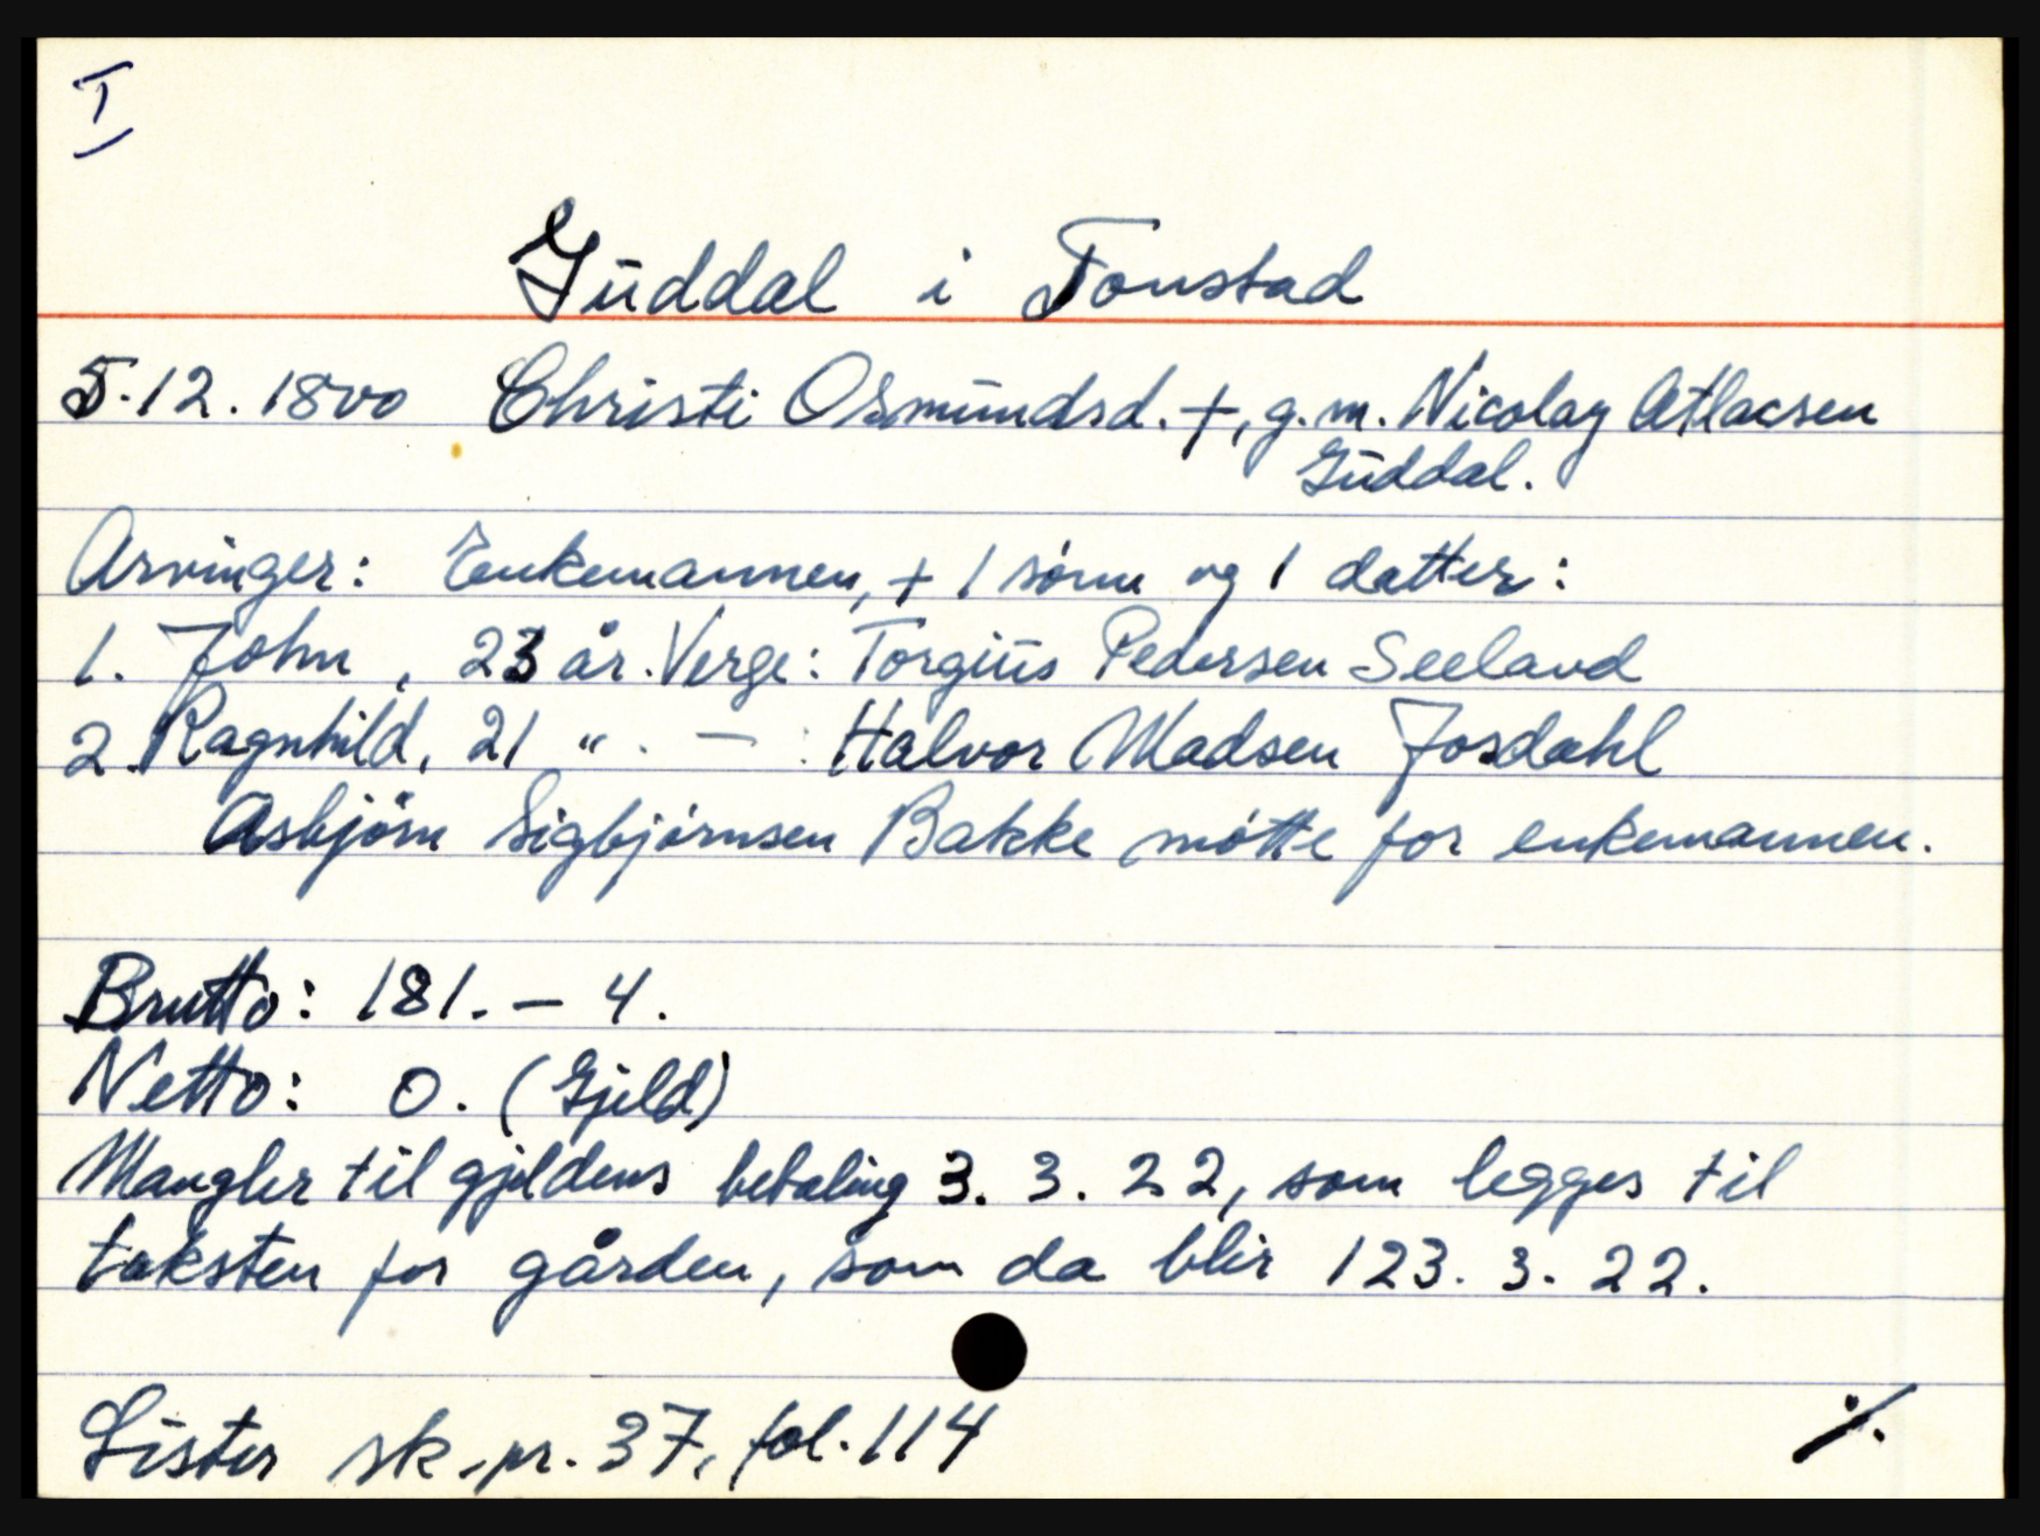 I
Guddal i Tonstad
5.12.1800 Christi Osmundsd. +, g.m. Nicolay Atlacsen
Guddal.
Arvinger: Enkemannen, + 1 sønn og 1 datter:
1. John, 23 år. Verge: Torgius Pedersen Seeland
2. Ragnhild, 21 " . — : Halvor Madsen Josdahl
Asbjørn Sigbjørnsen Bakke møtte for enkemannen.
Brutto: 181. – 4.
Netto: 0. (Gjeld)
Mangler til gjeldens betaling 3. 3. 22, som legges til
taksten for gården, som da blir 123. 3. 22.
Lister sk.pr. 37, fol. 114
./.